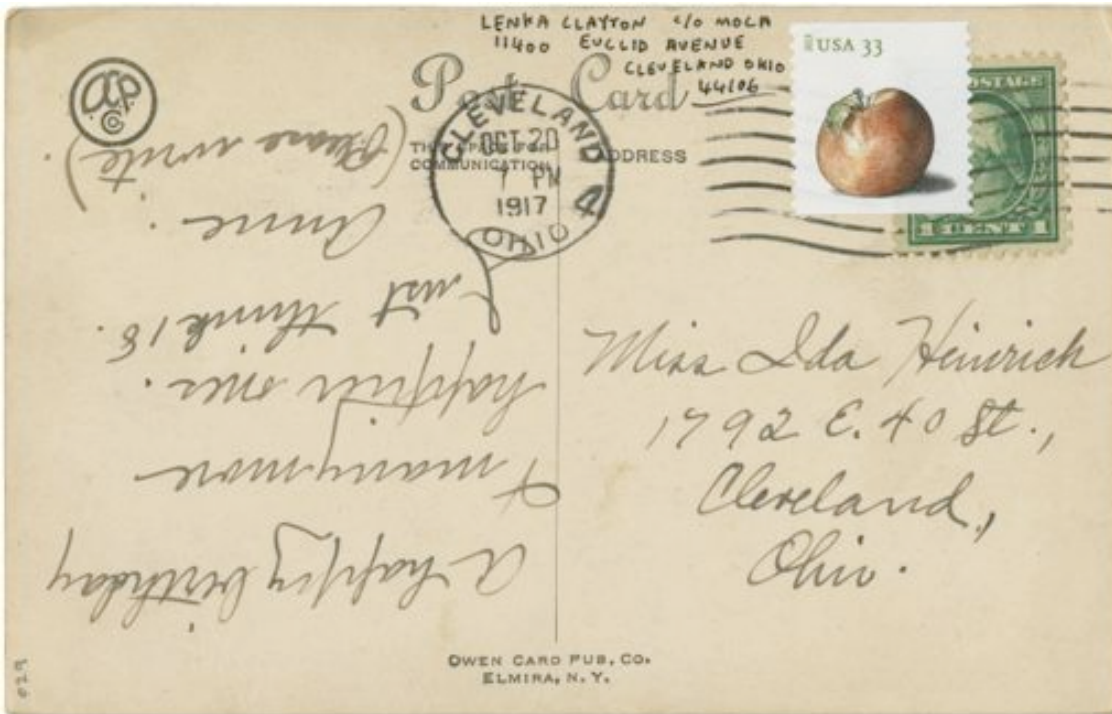 LENKA CLAYTON c/o MOCA
11400 EUCLID AVENUE
CLEVELAND OHIO
44106
Post Card
THIS SPACE FOR
COMMUNICATION
ADDRESS
CLEVELAND
OCT 20
7 PM
1917
OHIO
USA 33
POSTAGE
1 CENT 1
A happy birthday
& many more
happier ones.
Just think 18.
Anne.
(Please write).
Miss Ida Heinrich
1792 E. 40 St.,
Cleveland,
Ohio.
OWEN CARD PUB. CO.
ELMIRA, N. Y.
029